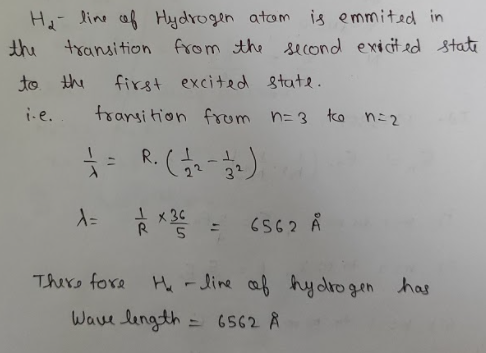 Hα- line of Hydrogen atom is emmited in
the transition from the second exicited state
to the first excited state.
i.e. transition from n=3 to n=2
1/λ = R. (1/2² - 1/3²)
λ= 1/R × 36/5 = 6562 Å
There fore Hα - line of hydrogen has
Wave length = 6562 Å